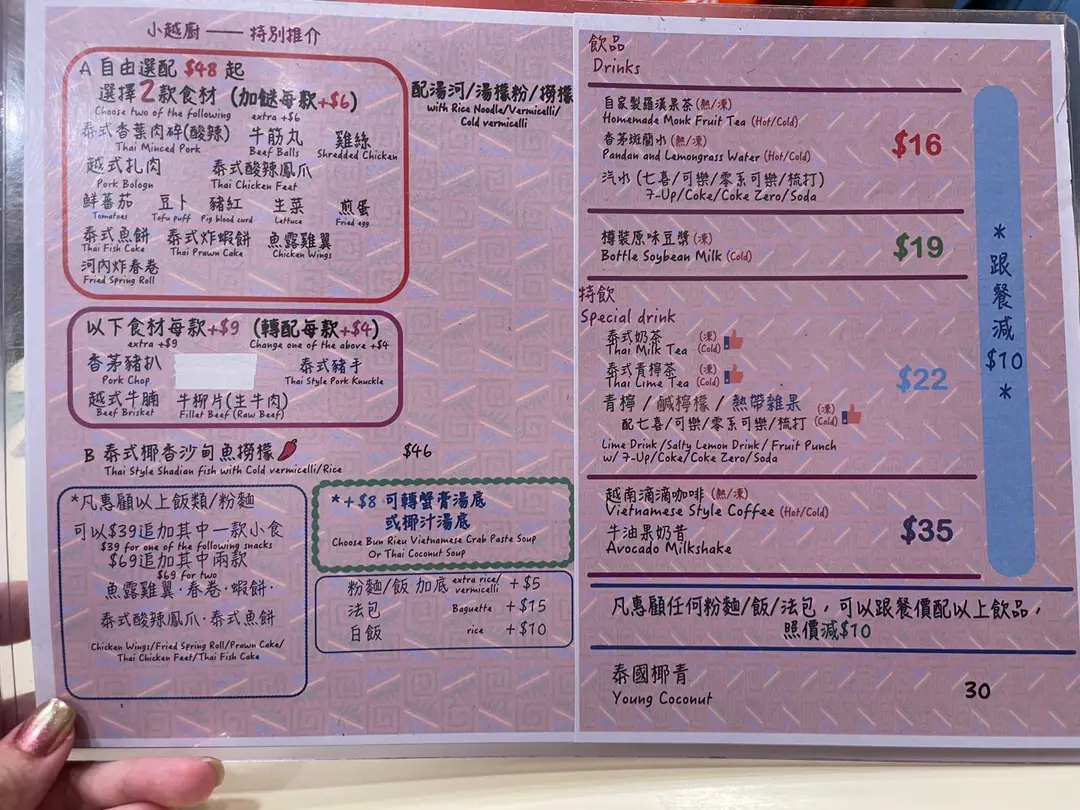 小越廚 —— 特別推介
A 自由選配 $48 起
選擇2款食材 (加餸每款+$6)
Choose two of the following extra +$6
配湯河/湯檬粉/撈檬
with Rice Noodle/Vermicelli/
Cold vermicelli
泰式香葉肉碎(酸辣) 牛筋丸 雞絲
Thai Minced Pork Beef Balls Shredded Chicken
越式扎肉 泰式酸辣鳳爪
Pork Bologn Thai Chicken Feet
鮮蕃茄 豆卜 豬紅 生菜 煎蛋
Tomatoes Tofu puff Pig blood curd Lettuce Fried egg
泰式魚餅 泰式炸蝦餅 魚露雞翼
Thai Fish Cake Thai Prawn Cake Chicken Wings
河內炸春卷
Fried Spring Roll
以下食材每款+$9 (轉配每款+$4)
extra +$9 Change one of the above +$4
香茅豬扒 泰式豬手
Pork Chop Thai Style Pork Knuckle
越式牛腩 牛柳片(生牛肉)
Beef Brisket Fillet Beef (Raw Beef)
B 泰式椰香沙甸魚撈檬 $46
Thai Style Shadian fish with Cold vermicelli/Rice
*凡惠顧以上飯類/粉麵
可以$39追加其中一款小食
$39 for one of the following snacks
$69追加其中兩款
$69 for two
魚露雞翼·春卷·蝦餅·
泰式酸辣鳳爪·泰式魚餅
Chicken Wings/Fried Spring Roll/Prawn Cake/
Thai Chicken Feet/Thai Fish Cake
*+$8 可轉蟹膏湯底
或椰汁湯底
Choose Bun Rieu Vietnamese Crab Paste Soup
Or Thai Coconut Soup
粉麵/飯 加底 extra rice/vermicelli +$5
法包 Baguette +$15
白飯 rice +$10
飲品
Drinks
自家製羅漢果茶 (熱/凍)
Homemade Monk Fruit Tea (Hot/Cold)
香茅斑蘭水 (熱/凍)
Pandan and Lemongrass Water (Hot/Cold)
$16
汽水 (七喜/可樂/零系可樂/梳打)
7-Up/Coke/Coke Zero/Soda
樽裝原味豆漿 (凍)
Bottle Soybean Milk (Cold)
$19
特飲
Special drink
泰式奶茶 (凍)
Thai Milk Tea (Cold)
泰式青檸茶 (凍)
Thai Lime Tea (Cold)
$22
青檸 / 鹹檸檬 / 熱帶雜果 (凍)
配七喜/可樂/零系可樂/梳打 (Cold)
Lime Drink/Salty Lemon Drink/Fruit Punch
w/ 7-Up/Coke/Coke Zero/Soda
越南滴滴咖啡 (熱/凍)
Vietnamese Style Coffee (Hot/Cold)
牛油果奶昔
Avocado Milkshake
$35
*
跟
餐
減
$10
*
凡惠顧任何粉麵/飯/法包，可以跟餐價配以上飲品，
照價減$10
泰國椰青
Young Coconut
30